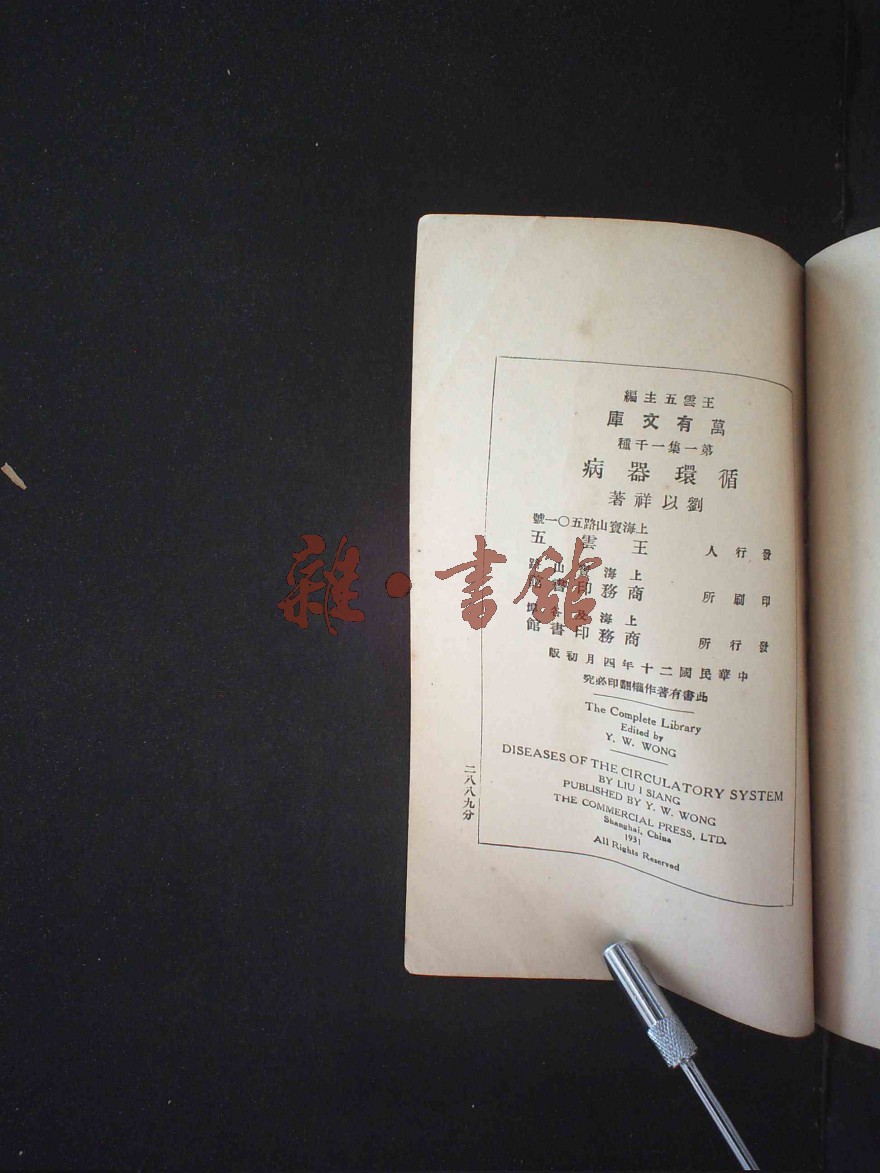 王雲五主編
萬有文庫
第一集一千種
循環器病
劉以祥著
上海寶山路五〇一號
發行人 王雲五
上海 山路
印刷所 商務印書館
上海及各埠
發行所 商務印書館
中華民國二十年四月初版
此書有著作權翻印必究
The Complete Library
Edited by
Y. W. WONG
DISEASES OF THE CIRCULATORY SYSTEM
BY LIU I SIANG
PUBLISHED BY Y. W. WONG
THE COMMERCIAL PRESS, LTD.
Shanghai, China
1931
All Rights Reserved
二八八九分
雜·書館